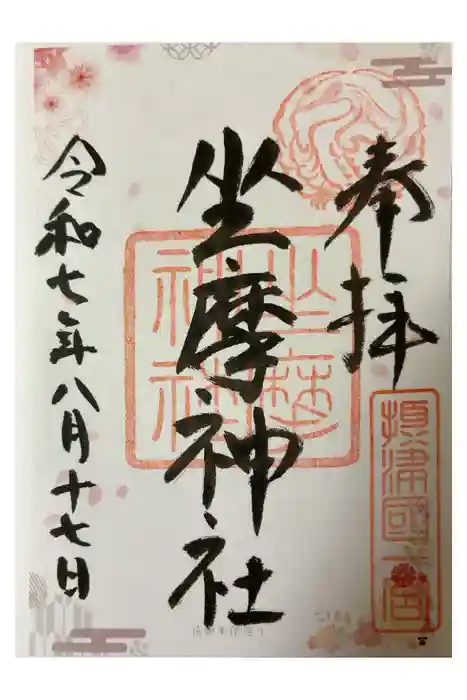 奉拝
摂津國一之宮
坐摩神社
坐摩神社
令和七年八月十七日